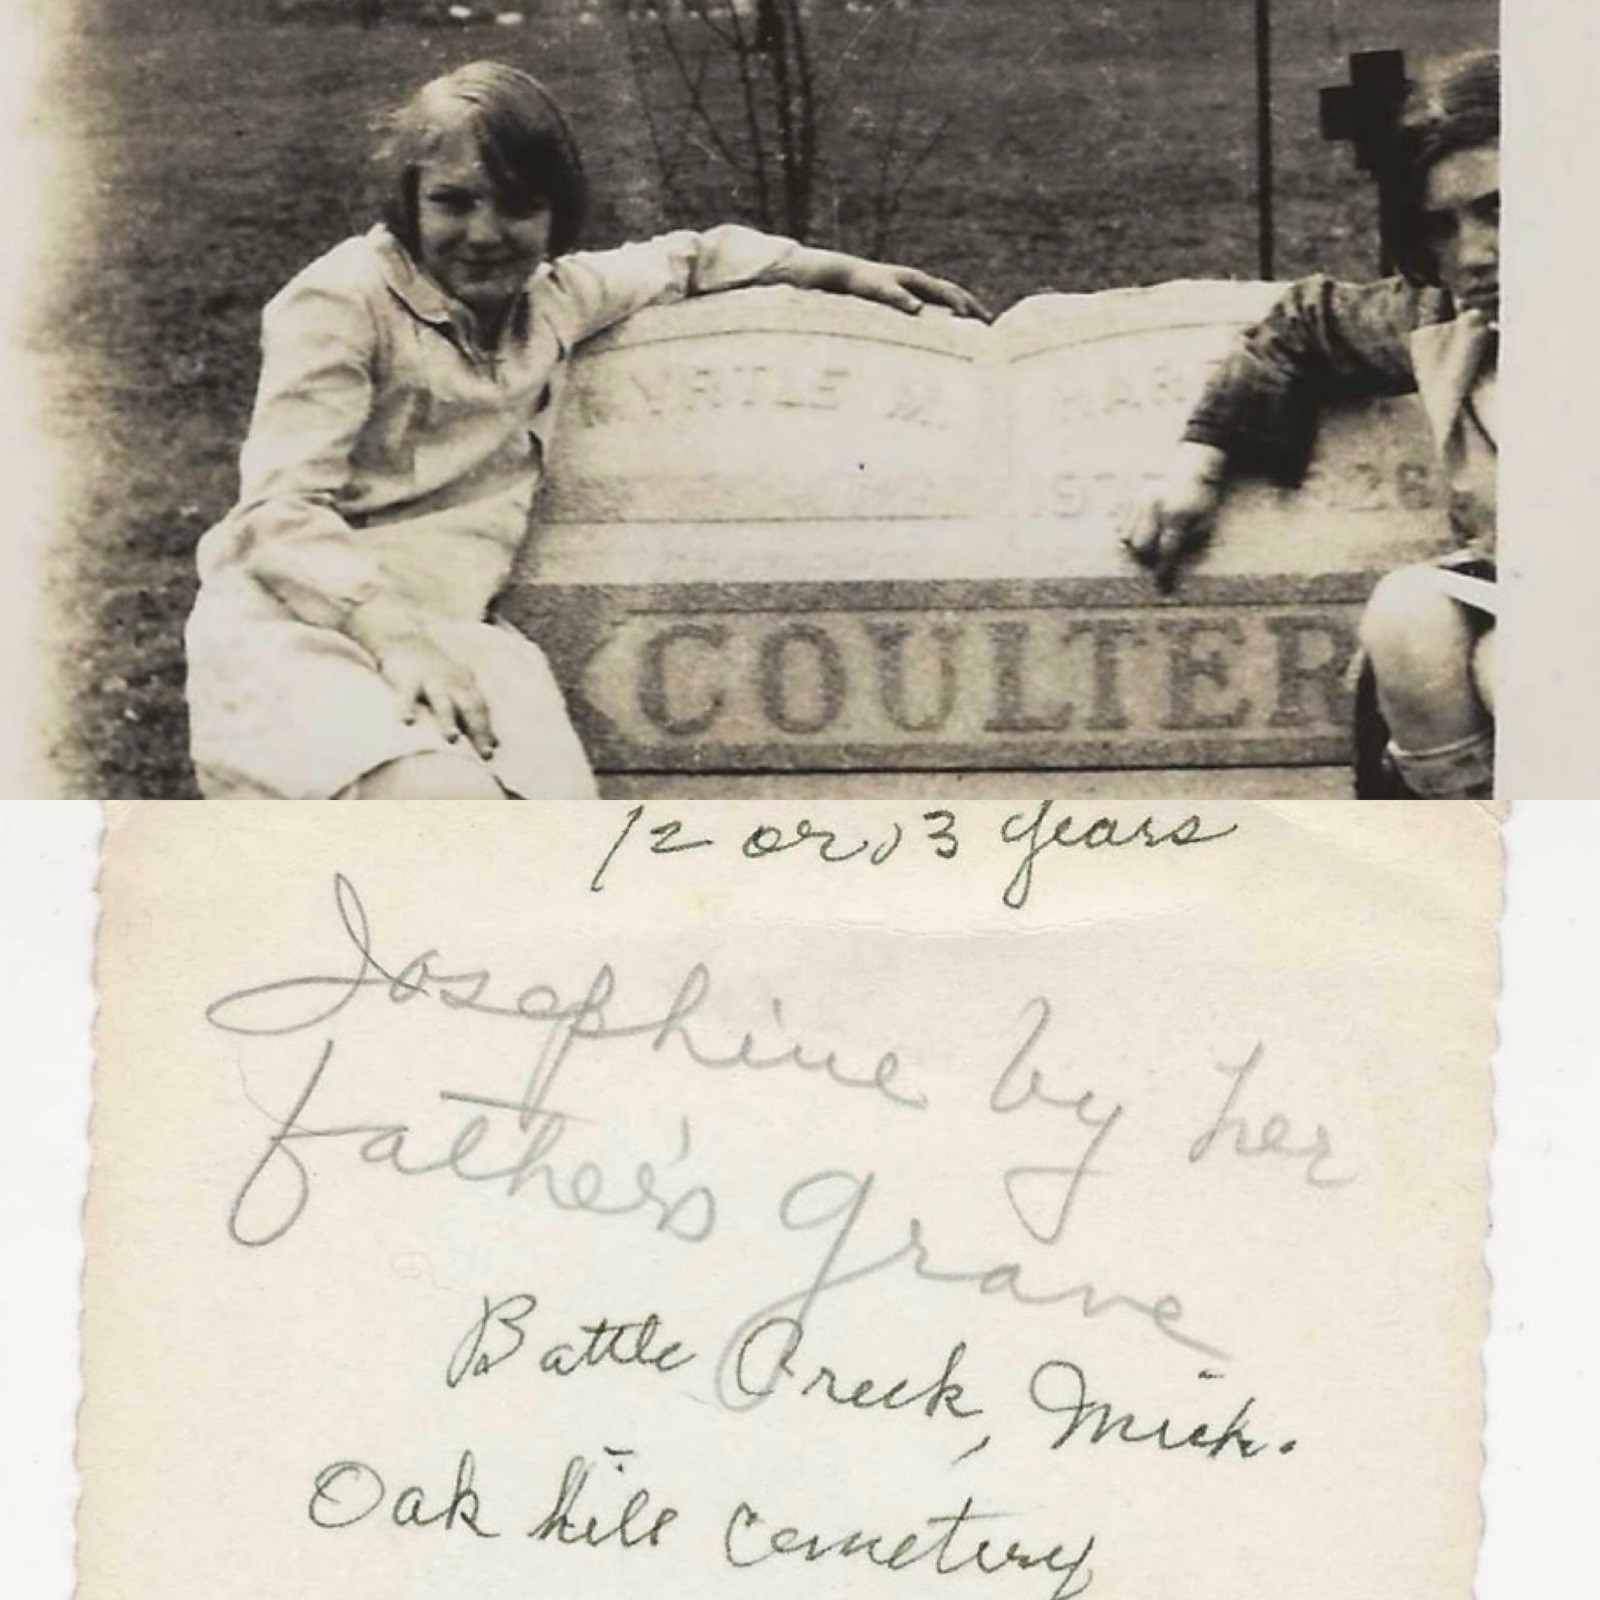 MYRTLE M.
COULTER
12 or 13 years
Josephine by her
father's grave
Battle Creek, Mich.
Oak Hill Cemetery